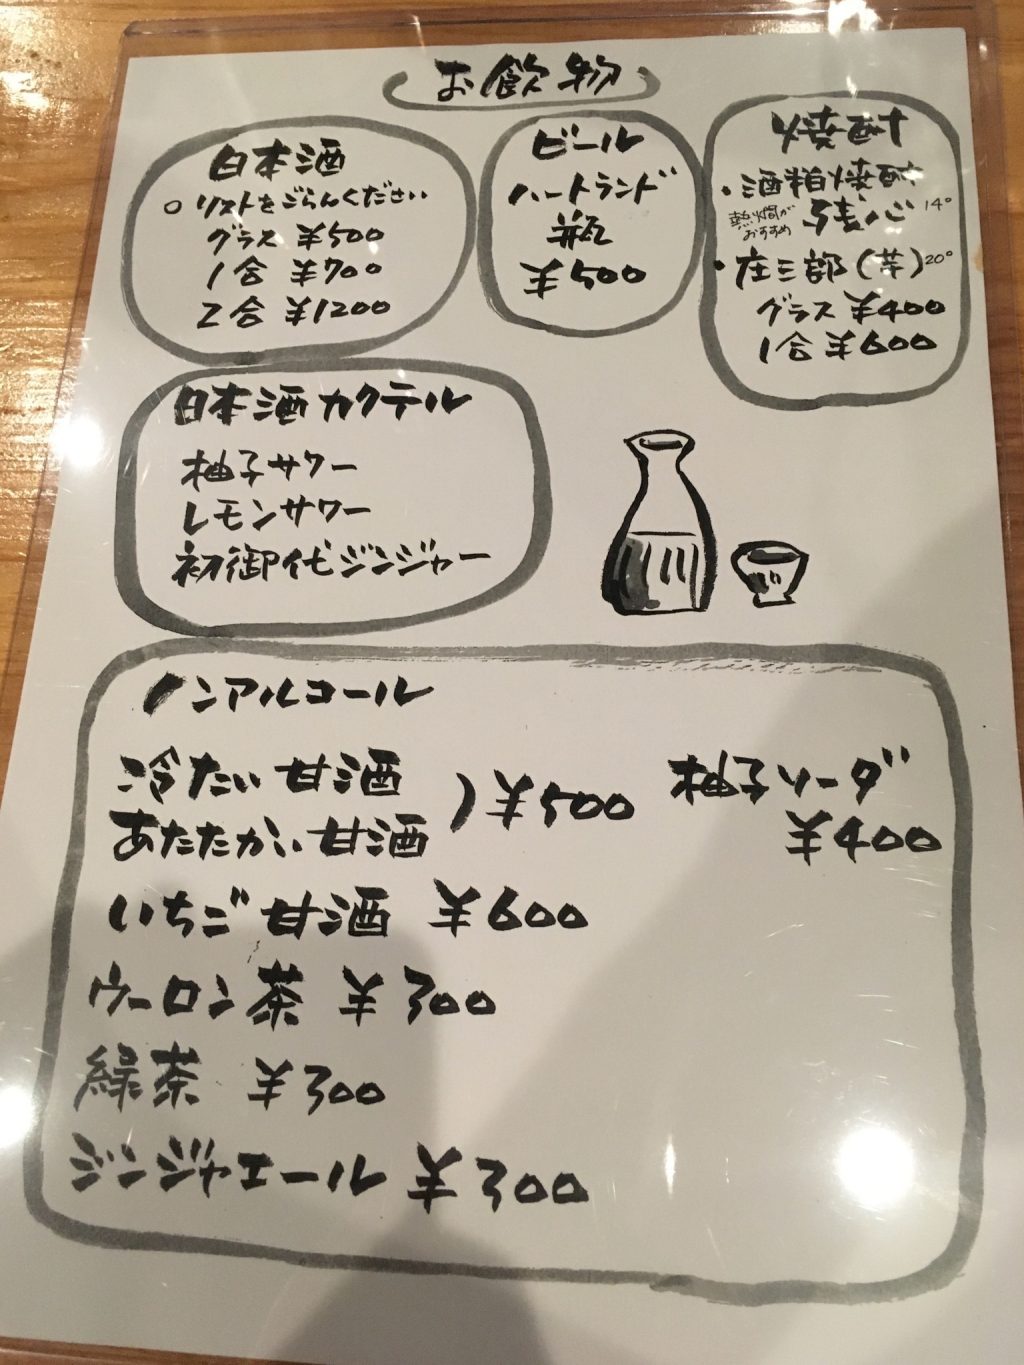 お飲物
日本酒
○ リストをごらんください
グラス ¥500
1合 ¥700
2合 ¥1200
ビール
ハートランド
瓶
¥500
焼酎
・酒粕焼酎
熱燗が
おすすめ
残心 14°
・庄三郎(芋)20°
グラス ¥400
1合 ¥600
日本酒カクテル
柚子サワー
レモンサワー
初御代ジンジャー
ノンアルコール
冷たい甘酒
あたたかい甘酒
) ¥500
いちご甘酒 ¥600
ウーロン茶 ¥300
緑茶 ¥300
ジンジャエール ¥300
柚子ソーダ
¥400